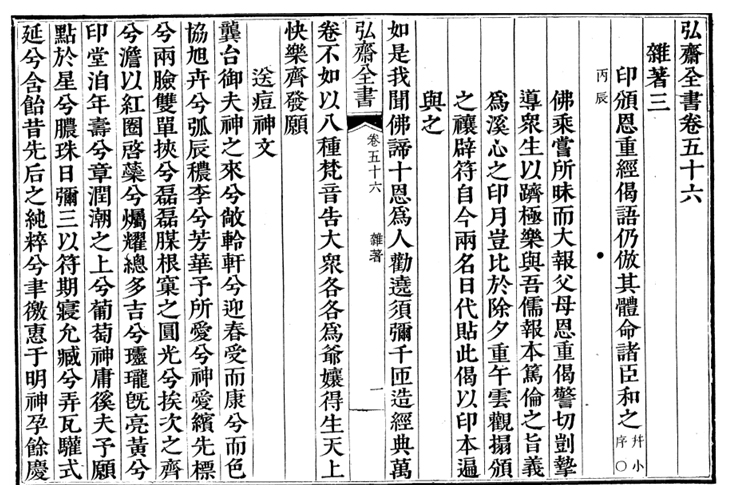 弘齋全書卷五十六
雜著三
印頒恩重經偈語仍倣其體命諸臣和之 幷小序○丙辰
佛乘嘗所昧而大報父母恩重偈警切剴摯
導衆生以躋極樂與吾儒報本篤倫之旨義
爲溪心之印月豈比於除夕重午雲觀搨頒
之禳辟符自今兩名日代貼此偈以印本遍
與之
如是我聞佛諦十恩爲人勸遶須彌千匝造經典萬
弘齋全書 卷五十六 雜著 一
卷不如以八種梵音告大衆各各爲爺孃得生天上
快樂齊發願
送痘神文
龔台御夫神之來兮敞軨軒兮迎春受而康兮而色
協旭卉兮弧辰穠李兮芳華予所愛兮神愛繽先標
兮兩臉雙單挾兮磊磊腜根窠之圓光兮挨次之齊
兮澹以紅圈啓蘂兮爥耀總多吉兮瓏瓏旣亮黃兮
印堂洎年壽兮章潤潮之上兮葡萄神庸徯夫予願
點於星兮膿珠日彌三以符期寢允臧兮弄瓦驩式
延兮含飴昔先后之純粹兮聿徼惠于明神孕餘慶